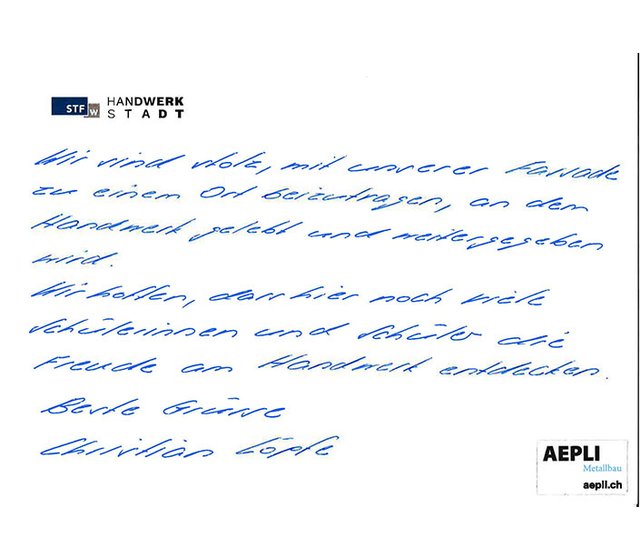 STF W HANDWERK
STADT
Wir sind stolz, mit unserer Fassade
zu einem Ort beizutragen, an dem
Handwerk gelebt und weitergegeben
wird.
Wir hoffen, dass hier noch viele
Schülerinnen und Schüler die
Freude am Handwerk entdecken.
Beste Grüsse
Christian Löpfe
AEPLI
Metallbau
aepli.ch